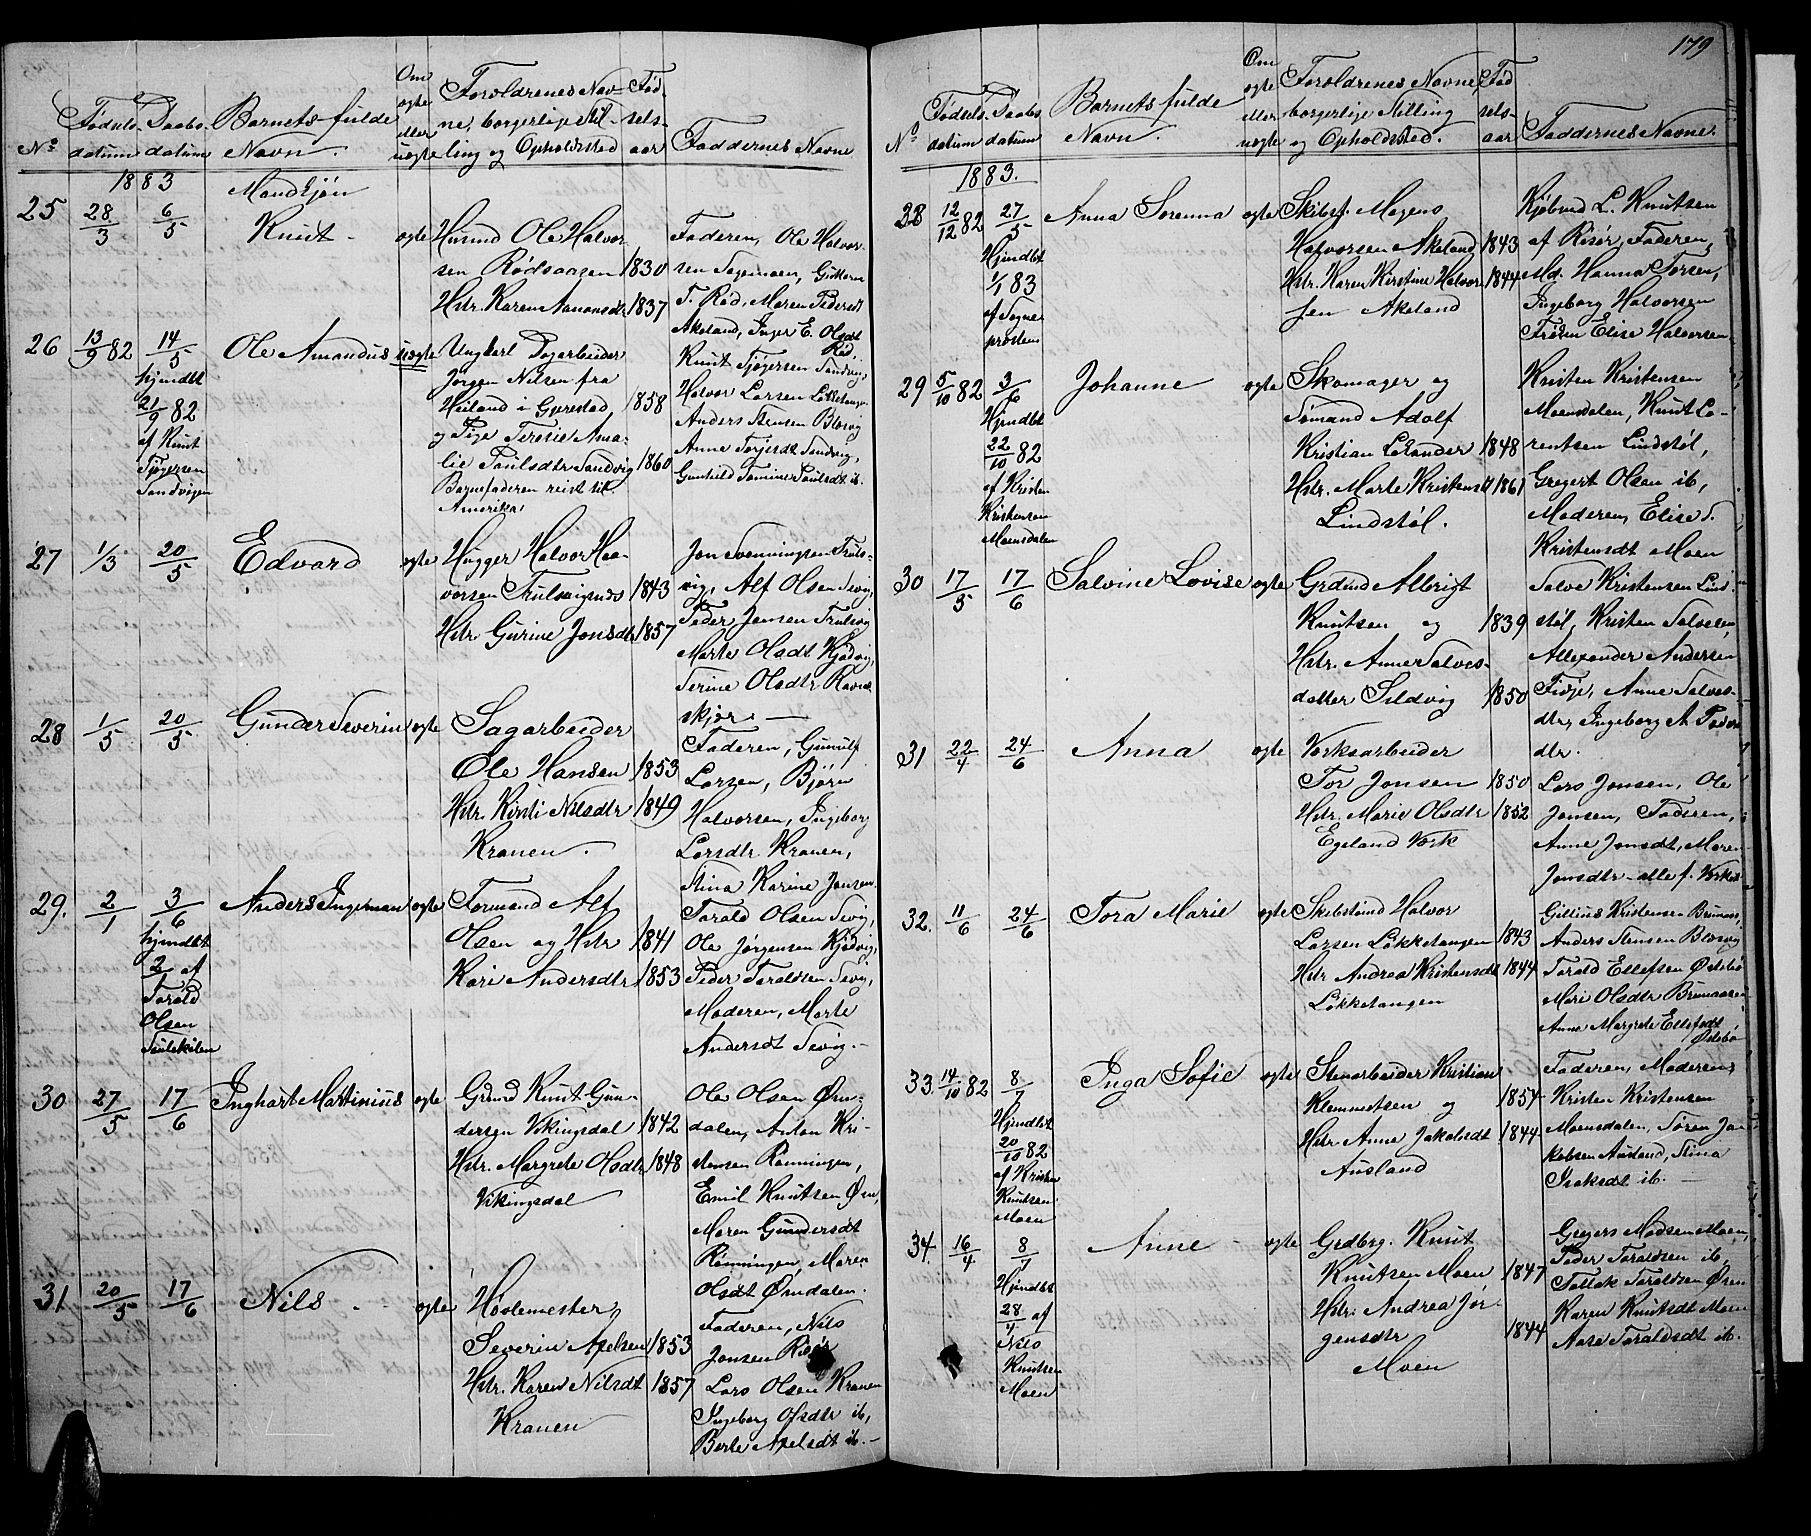 No
Fødsels-
datum
Daabs-
datum
Barnets fulde
Navn.
Om
ægte
eller
uægte
Forældrenes Nav-
ne, borgerlige Stil-
ling og Opholdssted
Fød-
sels-
aar
Faddernes Navne
1883
Mandkjøn
25
28/3
6/5
Knut
ægte
Husmd Ole Halvor-
sen Rødsaasen 1830
Hstr. Karen Aanonsdt 1837
Faderen, Ole Halvor-
sen
T. Rød, Maren Pedersdt
Akeland, Inger E. Olsdt
Rød.
26
13/9 82
14/5
hjmdbt
21/9 82
af Knut
Tjøgersen
Sandvigen
Ole Amandus
uægte
Ungkarl Dagarbeider
Jørgen Nilsen fra
Heiland i Gjerestad, 1858
og Pige Teresie Ama-
lie Poulsdtr Sandvig 1860
Barnefaderen reist til
Amerika.
Knut Tjøgersen Sandvig,
Halvor Larsen Løkketangen
Anders Stensen Blosvig
Anne Torjesdt Sandvig,
Gunhild Tomine Poulsdt ib.
27
1/3
20/5
Edvard
ægte
Hugger Halvor Hal-
vorsen Trulsvignes 1843
Hstr. Gurine Jonsdtr 1857
Jon Svenningsen Truls-
vig, Alf Olsen Sevig,
Peder Jensen Trulsvig
Marte Olsdt Kjødvig,
Serine Olsdtr Ravne-
skjær
28
1/5
20/5
Gunder Severin
ægte
Sagarbeider
Ole Hansen 1853
Hstr. Kirsti Nilsdtr 1849
Kranen.
Faderen, Gunulf
Larsen, Bjørn
Halvorsen, Ingeborg
Larsdtr Kranen,
Stina Karine Jansen
29.
2/1
3/6
hjmdbt
2/1 af
Torald
Olsen
Anders Ingelman
ægte
Formand Alf
Olsen og Hstr 1841
Kari Andersdtr 1853
Torald Olsen Sevig,
Ole Jørgensen Kjødvig,
Peder Toraldsen Sevig,
Moderen, Marte
Andersdt Sevig.
30
27/5
17/6
Inghart Martinius
ægte
Grdmd Knut Gun-
dersen Vikingsdal 1842
Hstr. Margrete Olsdtr 1848
Vikingsdal
Ole Olsen Ørn-
dalen, Anton Kri-
stensen Rønningen,
Emil Knutsen Ørn,
Maren Gundersdt
Rønningen, Maren
Olsdt Ørndalen.
31
20/5
17/6
Nils
ægte
Høvlemester
Severin Axelsen 1853
Hstr. Karen Nilsdt 1857
Kranen
Faderen, Nils
Jonsen Risør
Lars Olsen Kranen
Ingeborg Olsdtr ib,
Berte Axelsdt ib.
179
No
Fødsels-
datum
Daabs-
datum
Barnets fulde
Navn.
Om
ægte
eller
uægte
Forældrenes Navne,
borgerlige Stilling
og Opholdssted.
Fød-
sels-
aar
Faddernes Navne.
1883.
28
12/12 82
27/5
Hjmdbt
1/1 83
af Sogne-
prosten
Anna Sorenna
ægte
Skibsf. Mogens
Halvorsen Akeland 1843
Hstr. Karen Kirstine Halvor- 1844
sen Akeland
Kjøbmd L. Knutsen
af Risør, Faderen,
Md. Hanna Torsen,
Ingeborg Halvorsen
Frøken Elise Halvorsen
29
5/10 82
3/6
Hjmdbt
22/10 82
af Kristen
Kristensen
Moensdalen
Johanne
ægte
Skomager og
Sømand Adolf
Kristian Lolander 1848
Hstr. Marte Kristensdt 1861
Lindstøl.
Kristen Kristensen
Moensdalen, Knut Lo-
rentsen Lindstøl,
Gregert Olsen ib,
Moderen, Elise S.
Kristensdt Moen
30
17/5
17/6
Salvine Lovise
ægte
Grdmd Albrigt
Knutsen og 1839
Hstr. Anne Salves-
datter Sildvig 1850
Salve Kristensen Lind-
støl, Kristen Salvesen,
Allexander Andersen
Fidje, Anne Salves-
dtr, Ingeborg A. Peders-
dtr.
31
22/4
24/6
Anna
ægte
Verksarbeider
Tor Jonsen 1850
Hstr. Marie Olsdtr 1852
Egeland Verk
Lars Jonsen, Ole
Jonsen, Faderen,
Anne Jonsdt, Maren
Jonsdtr – alle f. Verket
32.
11/6
24/6
Tora Marie
ægte
Skibstømd Halvor
Larsen Løkketangen 1843
Hstr Andrea Kristensdt 1844
Løkketangen
Gillius Kristensen Brunaas,
Anders Stensen Blosvig
Torald Ellefsen Østebø
Mari Olsdtr Brunaasen
Anne Margrete Ellefsdt
Østebø
33.
14/10 82
8/7
Hjmdbt
20/10 82
af Kristen
Knutsen
Moen
Inga Sofie
ægte
Stenarbeider Kristian
Klemmetsen og 1854
Hstr. Anne Jakobsdt 1844
Ausland
Faderen, Moderen,
Kristen Kristensen
Moensdalen, Søren Ja-
kobsen Ausland, Stina
Isaksdt ib.
34.
16/4
8/7
Hjmdbt
28/4 af
Nils
Knutsen
Moen
Anne
ægte
Grdbrg. Knut
Knutsen Moen 1847
Hstr. Andrea Jør-
gensdtr 1844
Moen
Gregers Madsen Moen,
Peder Toraldsen ib,
Tallak Toraldsen Ørn
Karen Knutsdt Moen
Aase Toraldsdt ib.